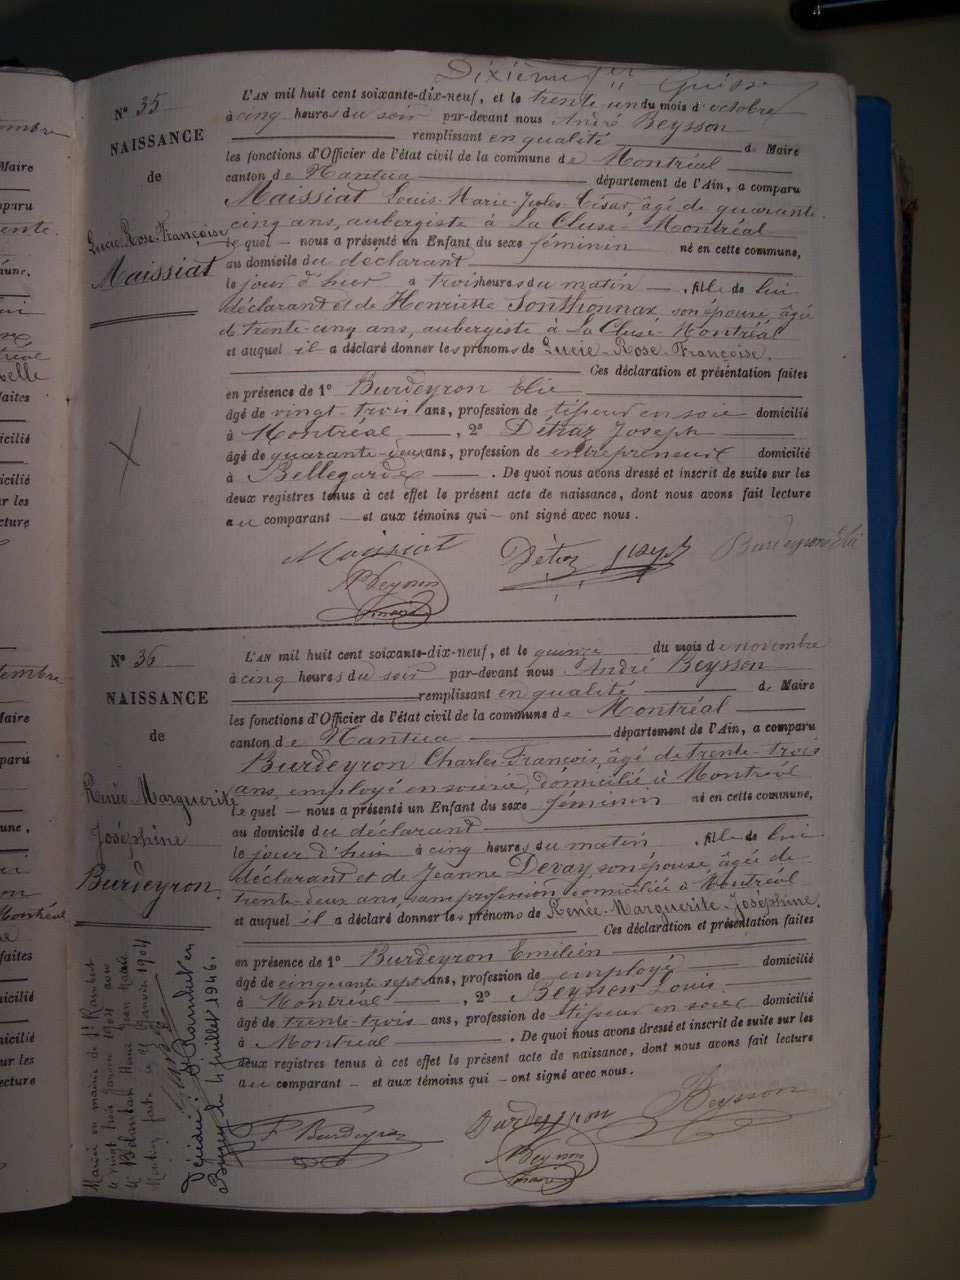 Dixième
N° 35
NAISSANCE
de
Lucie-Rose-Françoise
Maissiat
L'AN mil huit cent soixante-dix-neuf, et le trente un du mois d'octobre
à cinq heures du soir par-devant nous André Beysson
remplissant en qualité de Maire
les fonctions d'Officier de l'état civil de la commune de Montréal
canton de Nantua département de l'Ain, a comparu
Maissiat Louis-Marie-Jules-César, âgé de quarante-
cinq ans, aubergiste à La Cluse-Montréal
le quel — nous a présenté un Enfant du sexe féminin né en cette commune,
au domicile du déclarant
le jour d'hui à trois heures du matin — , fille de lui
déclarant et de Henriette Sonthonnax, son épouse, âgé
de trente-cinq ans, aubergiste à La Cluse-Montréal
et auquel il a déclaré donner les prénoms de Lucie-Rose-Françoise.
Ces déclaration et présentation faites
en présence de 1° Burdeyron Elie
âgé de vingt-trois ans, profession de tisseur en soie domicilié
à Montréal — , 2° Détraz Joseph
âgé de quarante-deux ans, profession de entrepreneur domicilié
à Bellegarde — . De quoi nous avons dressé et inscrit de suite sur les
deux registres tenus à cet effet le présent acte de naissance, dont nous avons fait lecture
au comparant — et aux témoins qui — ont signé avec nous.
Maissiat Détraz Joseph Burdeyron Elie
Beysson
maire
N° 36
NAISSANCE
de
Renée-Marguerite
Joséphine
Burdeyron
L'AN mil huit cent soixante-dix-neuf, et le quinze du mois de novembre
à cinq heures du soir par-devant nous André Beysson
remplissant en qualité de Maire
les fonctions d'Officier de l'état civil de la commune de Montréal
canton de Nantua département de l'Ain, a comparu
Burdeyron Charles-François, âgé de trente-trois
ans, employé en soierie, domicilié à Montréal
le quel — nous a présenté un Enfant du sexe féminin né en cette commune,
au domicile du déclarant
le jour d'hui à cinq heures du matin , fille de lui
déclarant et de Jeanne Devay, son épouse, âgée de
trente-deux ans, sans profession, domiciliée à Montréal
et auquel il a déclaré donner les prénoms de Renée-Marguerite-Joséphine.
Ces déclaration et présentation faites
en présence de 1° Burdeyron Emilien domicilié
âgé de cinquante sept ans, profession de employé
à Montréal — , 2° Beysson Louis
âgé de trente-trois ans, profession de tisseur en soie domicilié
à Montréal — . De quoi nous avons dressé et inscrit de suite sur les
deux registres tenus à cet effet le présent acte de naissance, dont nous avons fait lecture
au comparant — et aux témoins qui — ont signé avec nous.
F Burdeyron Burdeyron Beysson
Beysson
maire
Mariée en mairie de St Rambert
le vingt trois Janvier 1904 avec
Henri Jean
Mention faite le Janvier 1904
Décédée à St Rambert en
Bugey le 4 juillet 1946.